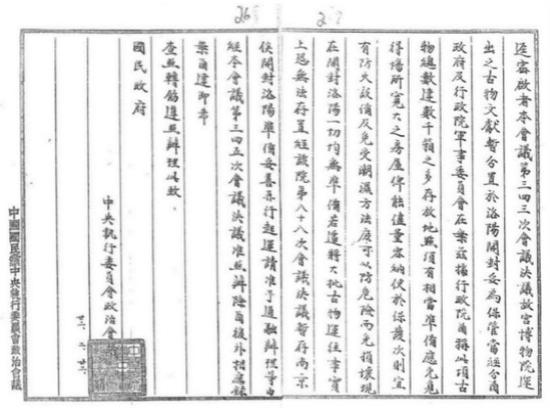 逕密啟者本會議第三四三次會議決議故宮博物院運
出之古物文獻暫分置於洛陽開封妥為保管當經分商
政府及行政院軍事委員會在案茲據行政院函稱以項古
物總數達數千箱之多存放地點須有相當準備應先覓
得場所寬大之房屋俾能儘量容納便於保護次則宜
有防火設備及免受潮濕方法庶可以防危險而免損壞現
在開封洛陽一切均無準備若遽轉大批古物運往事實
上恐無法存置經該院第八十八次會議決議暫存南京
俟開封洛陽準備妥善再行起運請准予通融辦理等由
經本會議第三四五次會議決議准照辦除函復外相應錄
案函達即希
查照轉飭遵照辦理此致
國民政府
中央執行委員會政治會
中國國民黨中央執行委員會政治會議